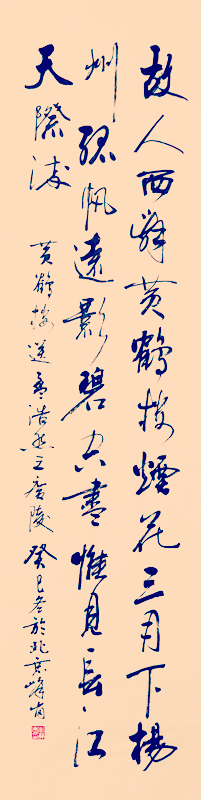 故人西辞黄鹤楼煙花三月下楊
州孤帆遠影碧空盡惟見長江
天際流
黄鹤楼送孟浩然之廣陵 癸巳冬於北京峰嵐